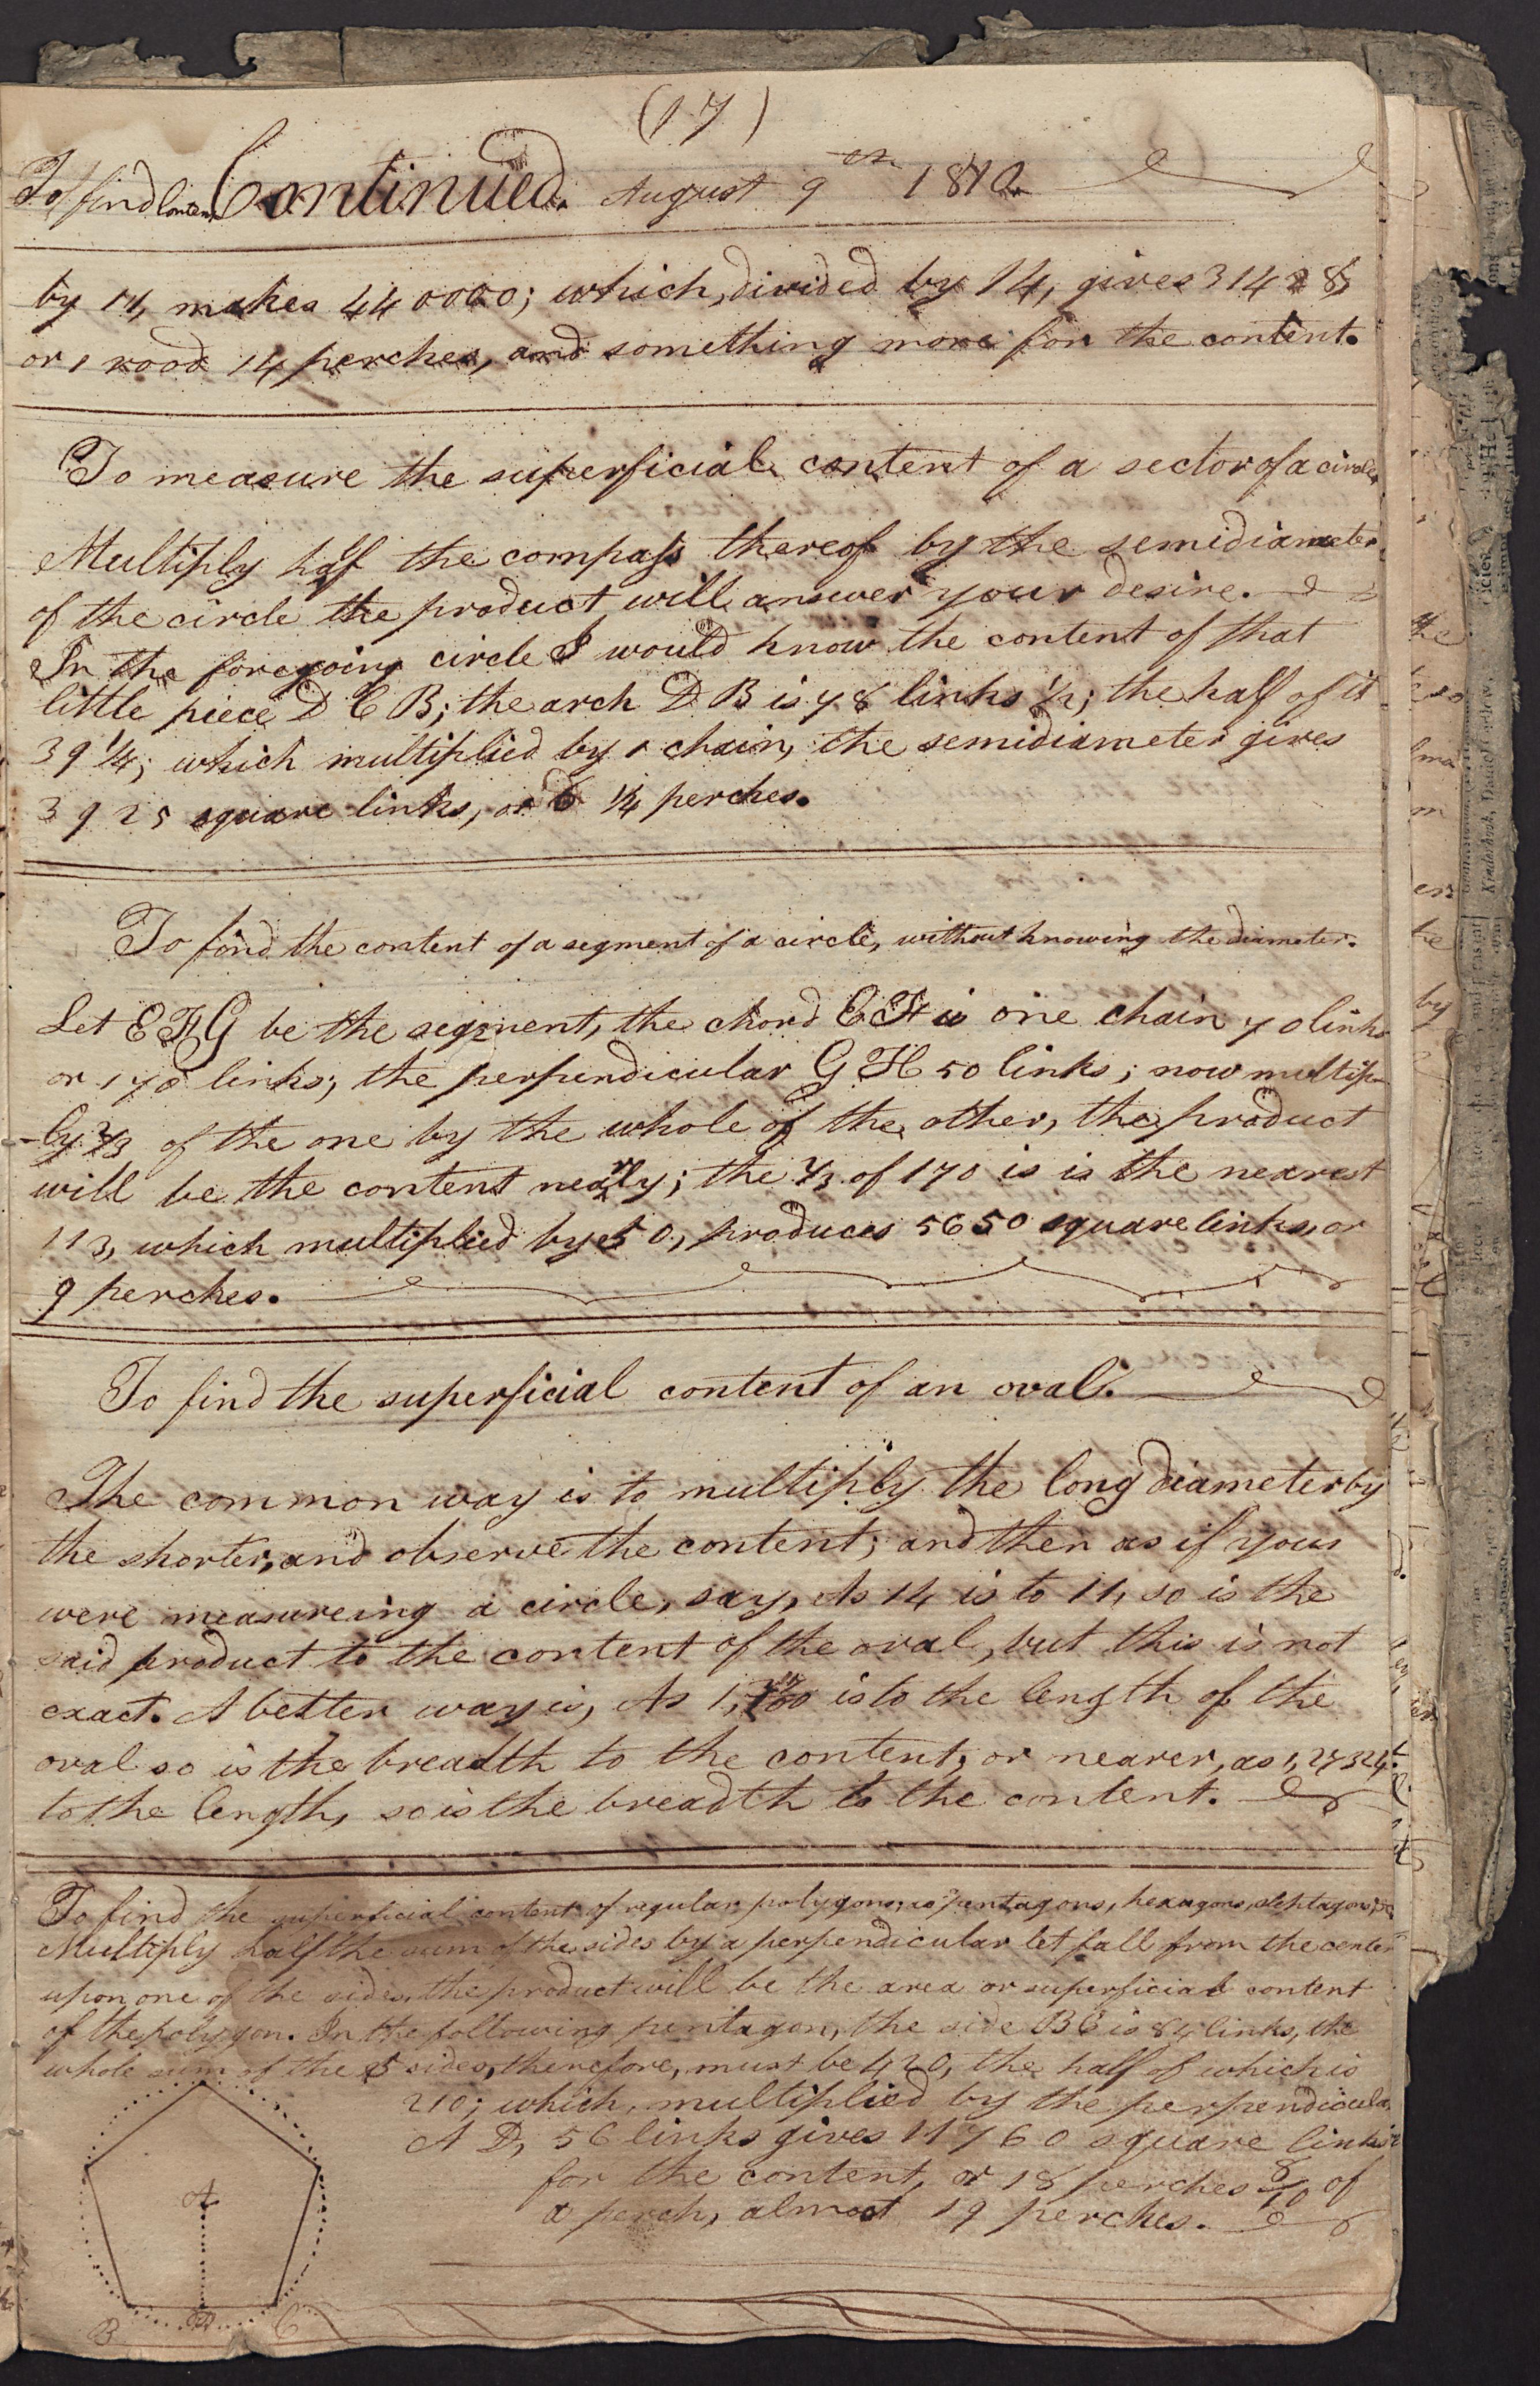 (17)
To find Content Continued. August 9th 1810
by 11, makes 440000; which, divided by 14, gives 31428,
or 1 rood 14 perches, and something more for the content.
To measure the superficial content of a sector of a circle,
Multiply half the compass thereof by the semidiameter
of the circle the product will answer your desire.
In the foregoing circle I would know the content of that
little piece D C B; the arch D B is 78 links 1/2; the half of it
39 1/4; which multiplied by 1 chain, the semidiameter gives
3925 square links, or 6 1/4 perches.
To find the content of a segment of a circle, without knowing the diameter.
Let E F G be the segment, the chord E F is one chain 70 links
or 170 links; the perpendicular G H 50 links; now multip-
-ly 2/3 of the one by the whole of the other, the product
will be the content nearly; the 2/3 of 170 is is the nearest
113, which multiplied by 50, produces 5650 square links, or
9 perches.
To find the superficial content of an oval.
The common way is to multiply the long diameter by
the shorter, and observe the content; and then as if your
were measureing a circle, say, As 14 is to 11, so is the
said product to the content of the oval, but this is not
exact. A better way is, As 1, is to the length of the
oval so is the breadth to the content; or nearer, as 1,27324
to the length, so is the breadth to the content.
To find the superficial content of regular polygons; as pentagons, hexagons,
Multiply half the sum of the sides by a perpendicular let fall from the center
upon one of the sides, the product will be the area or superficial content
of the polygon. In the following pentagon, the side B C is 84 links, the
whole sum of the 5 sides, therefore, must be 420, the half of which is
210; which, multiplied by the perpendicular
A D, 56 links gives 11760 square links
for the content, or 18 perches 8/10 of
a perch, almost 19 perches.
A
B D C